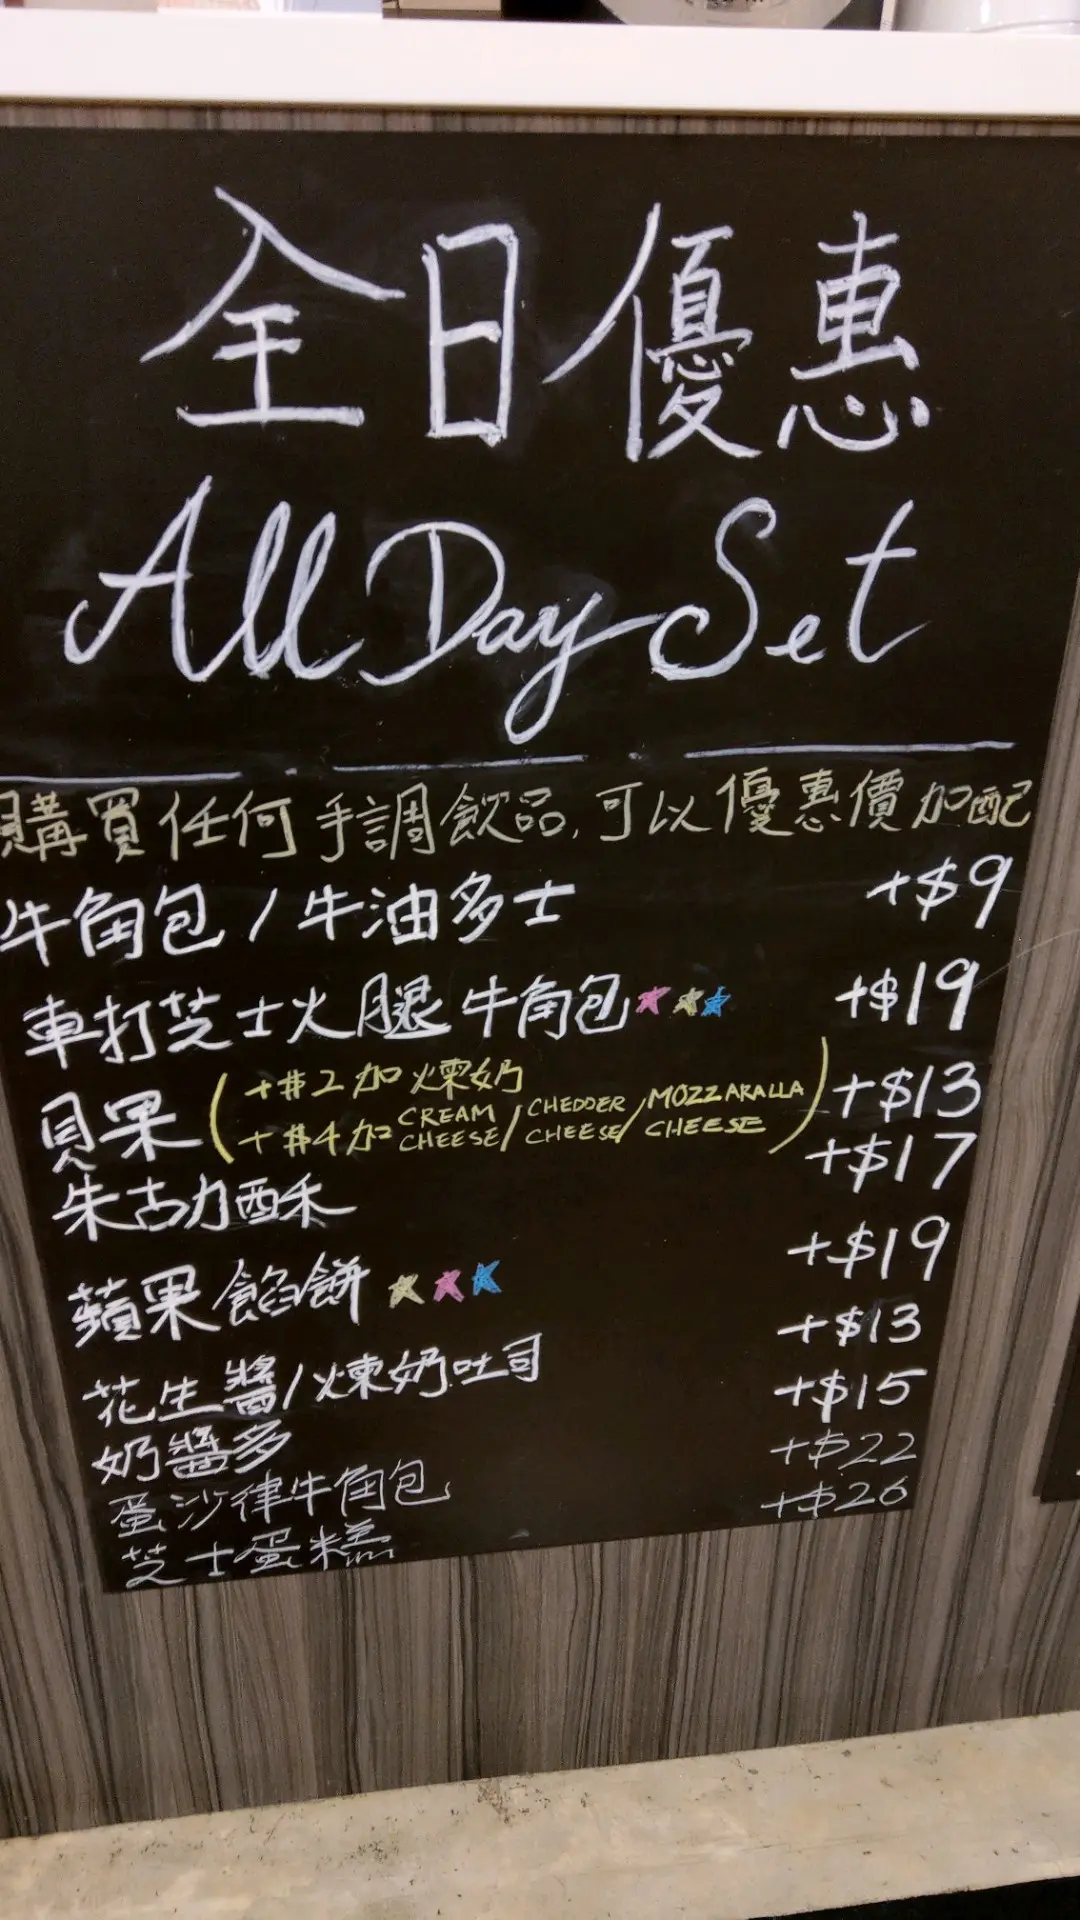 全日優惠
All Day Set
購買任何手調飲品,可以優惠價加配
牛角包/牛油多士 +$9
車打芝士火腿牛角包 +$19
貝果 (+$2加煉奶 +$13
+$4加 CREAM CHEESE/CHEDDER CHEESE/MOZZARALLA CHEESE)
朱古力酥 +$17
蘋果餡餅 +$19
花生醬/煉奶吐司 +$13
奶醬多 +$15
蛋沙律牛角包 +$22
芝士蛋糕 +$26